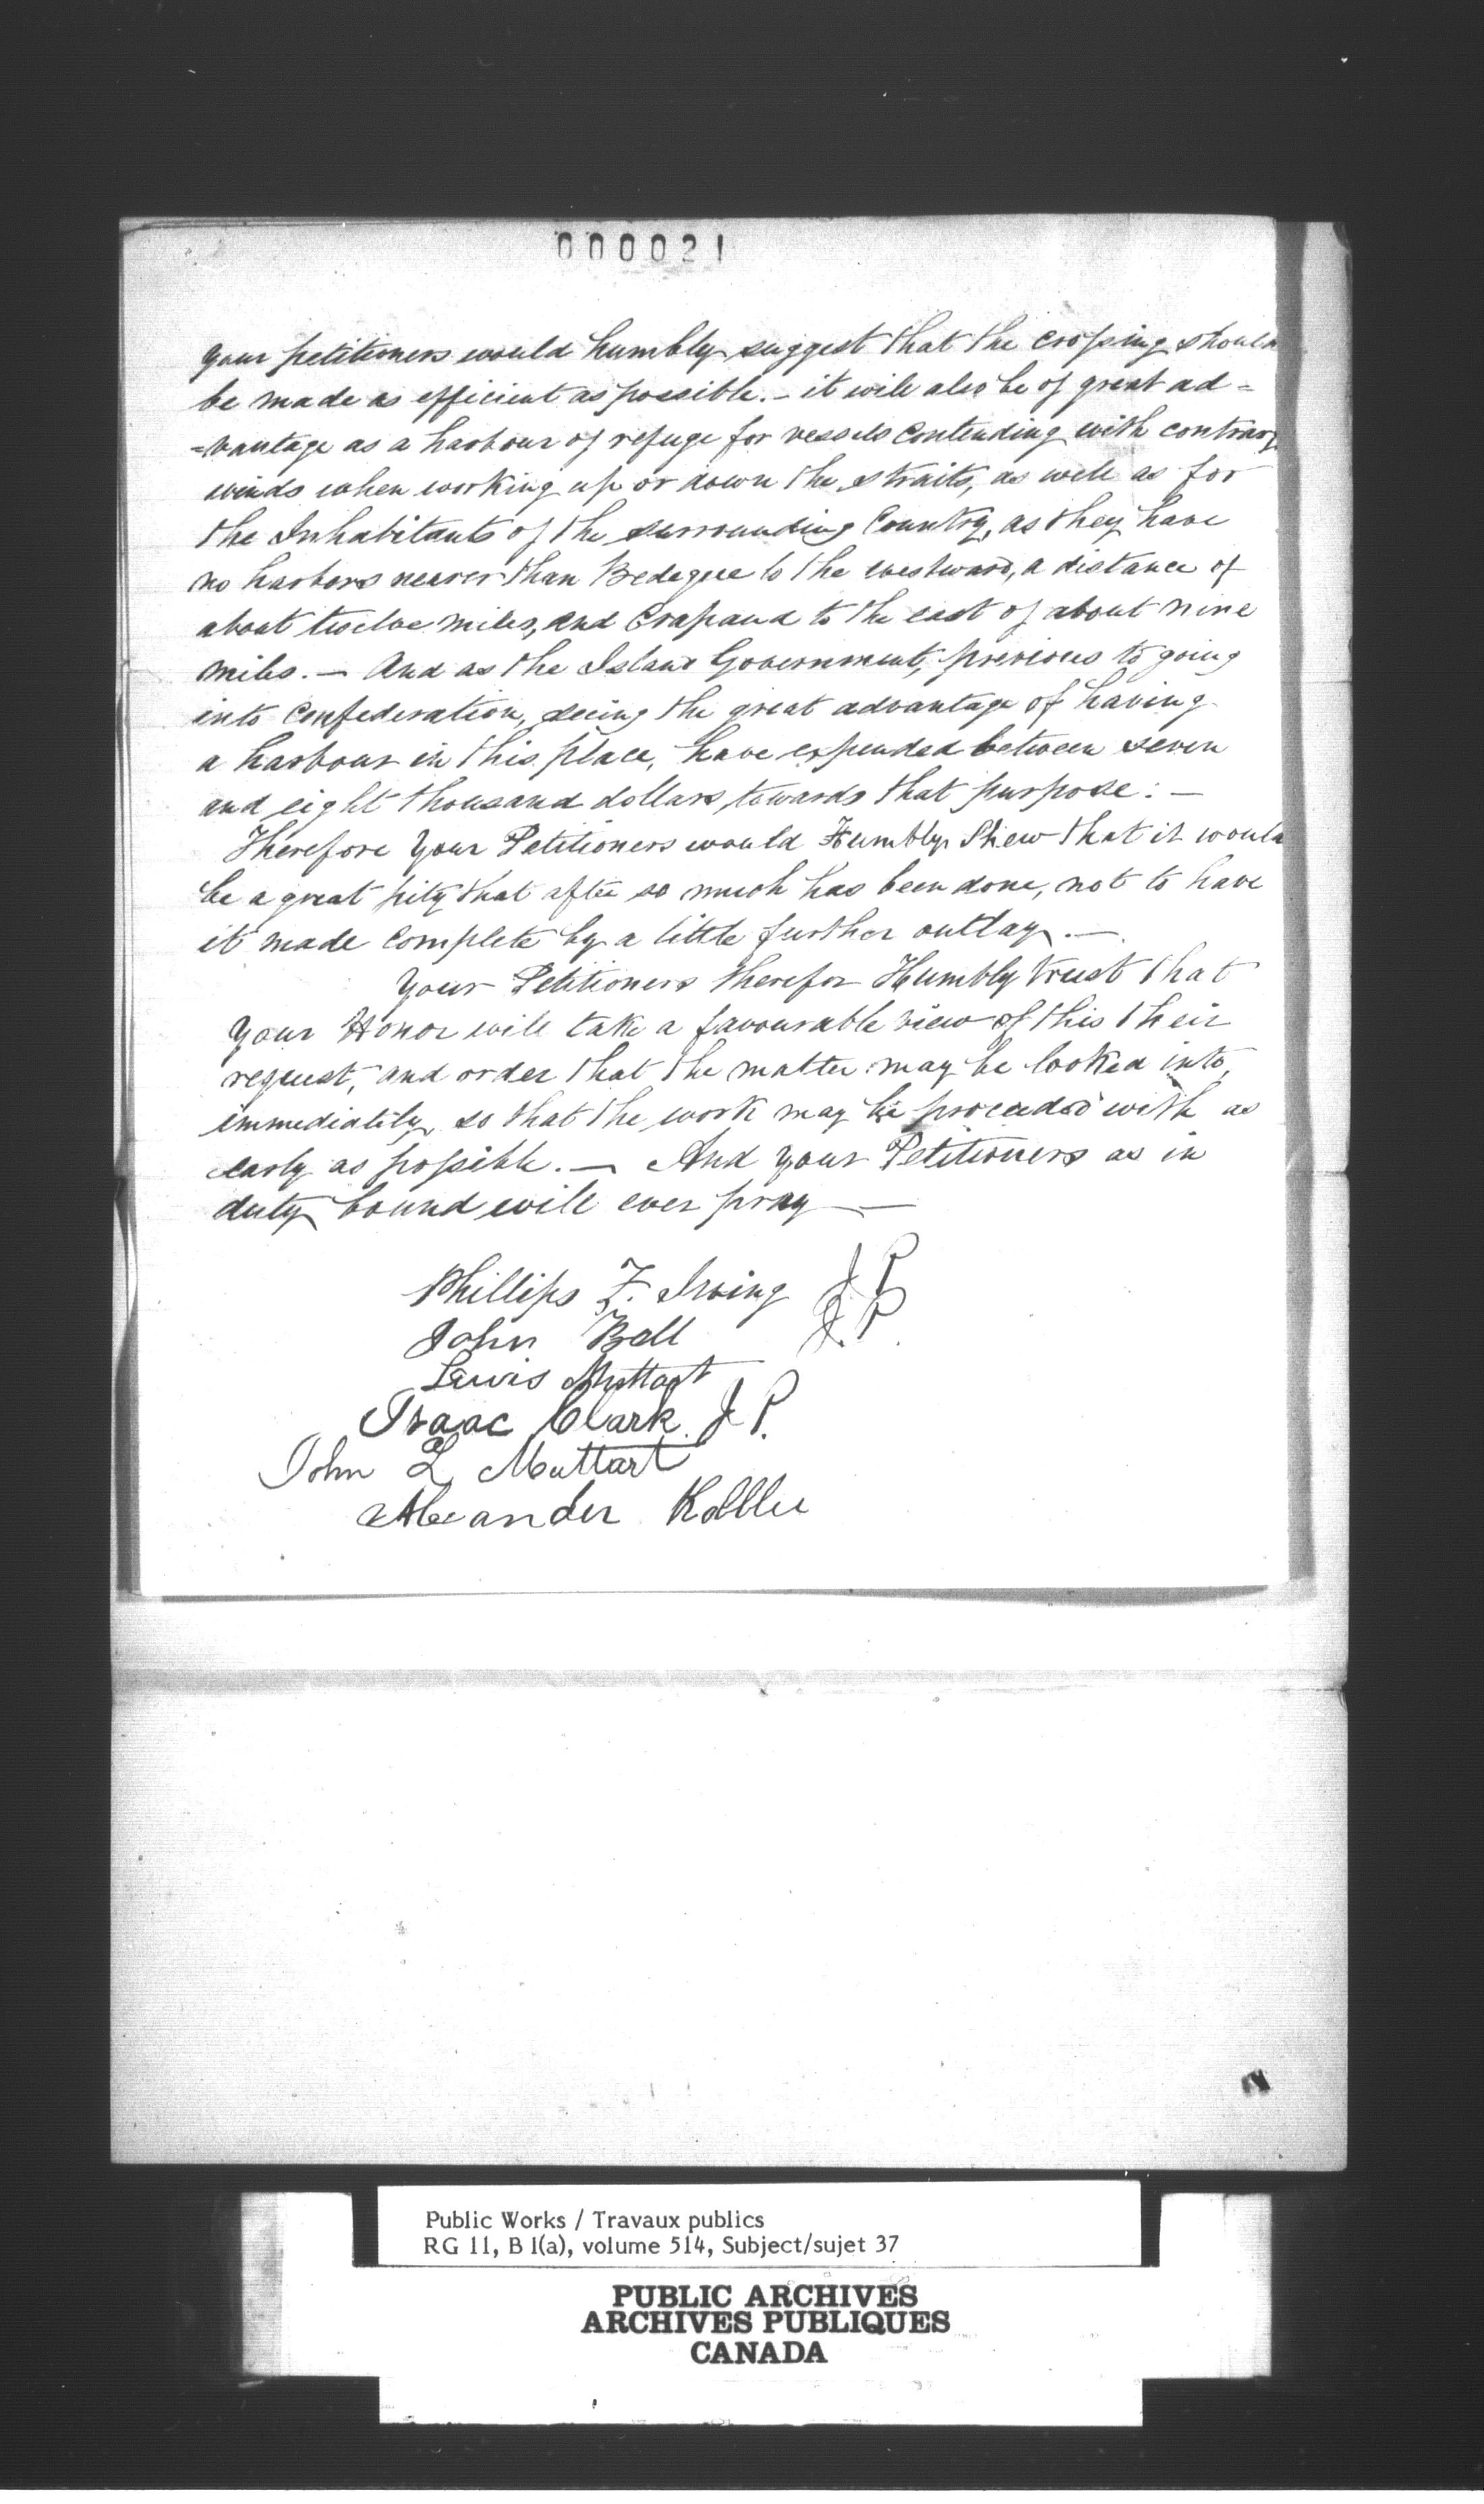 000021
your petitioners would humbly suggest that the crossing should
be made as efficient as possible. - it will also be of great ad=
=vantage as a harbour of refuge for vessels contending with contrary
winds when working up or down the straits, as well as for
the Inhabitants of the surrounding Country, as they have
no harbors nearer than Bedeque to the westward, a distance of
about twelve miles, and Crapaud to the east of about nine
miles. — And as the Island Government, previous to going
into Confederation, seeing the great advantage of having
a harbour in this place, have expended between seven
and eight thousand dollars, towards that purpose: —
Therefore Your Petitioners would Humbly Shew that it would
be a great pity that after so much has been done, not to have
it made complete by a little further outlay. —
Your Petitioners therefor Humbly trust that
Your Honor will take a favourable view of this their
request, and order that the matter may be looked into,
immediatily so that the work may be proceeded with as
early as possible. — And Your Petitioners as in
duty bound will ever pray —
Phillips F. Irving JP
John Bell J.P.
Lewis Muttart
Isaac Clark. J P.
John L Muttart
Alexander
Public Works / Travaux publics
RG 11, B 1(a), volume 514, Subject/sujet 37
PUBLIC ARCHIVES
ARCHIVES PUBLIQUES
CANADA